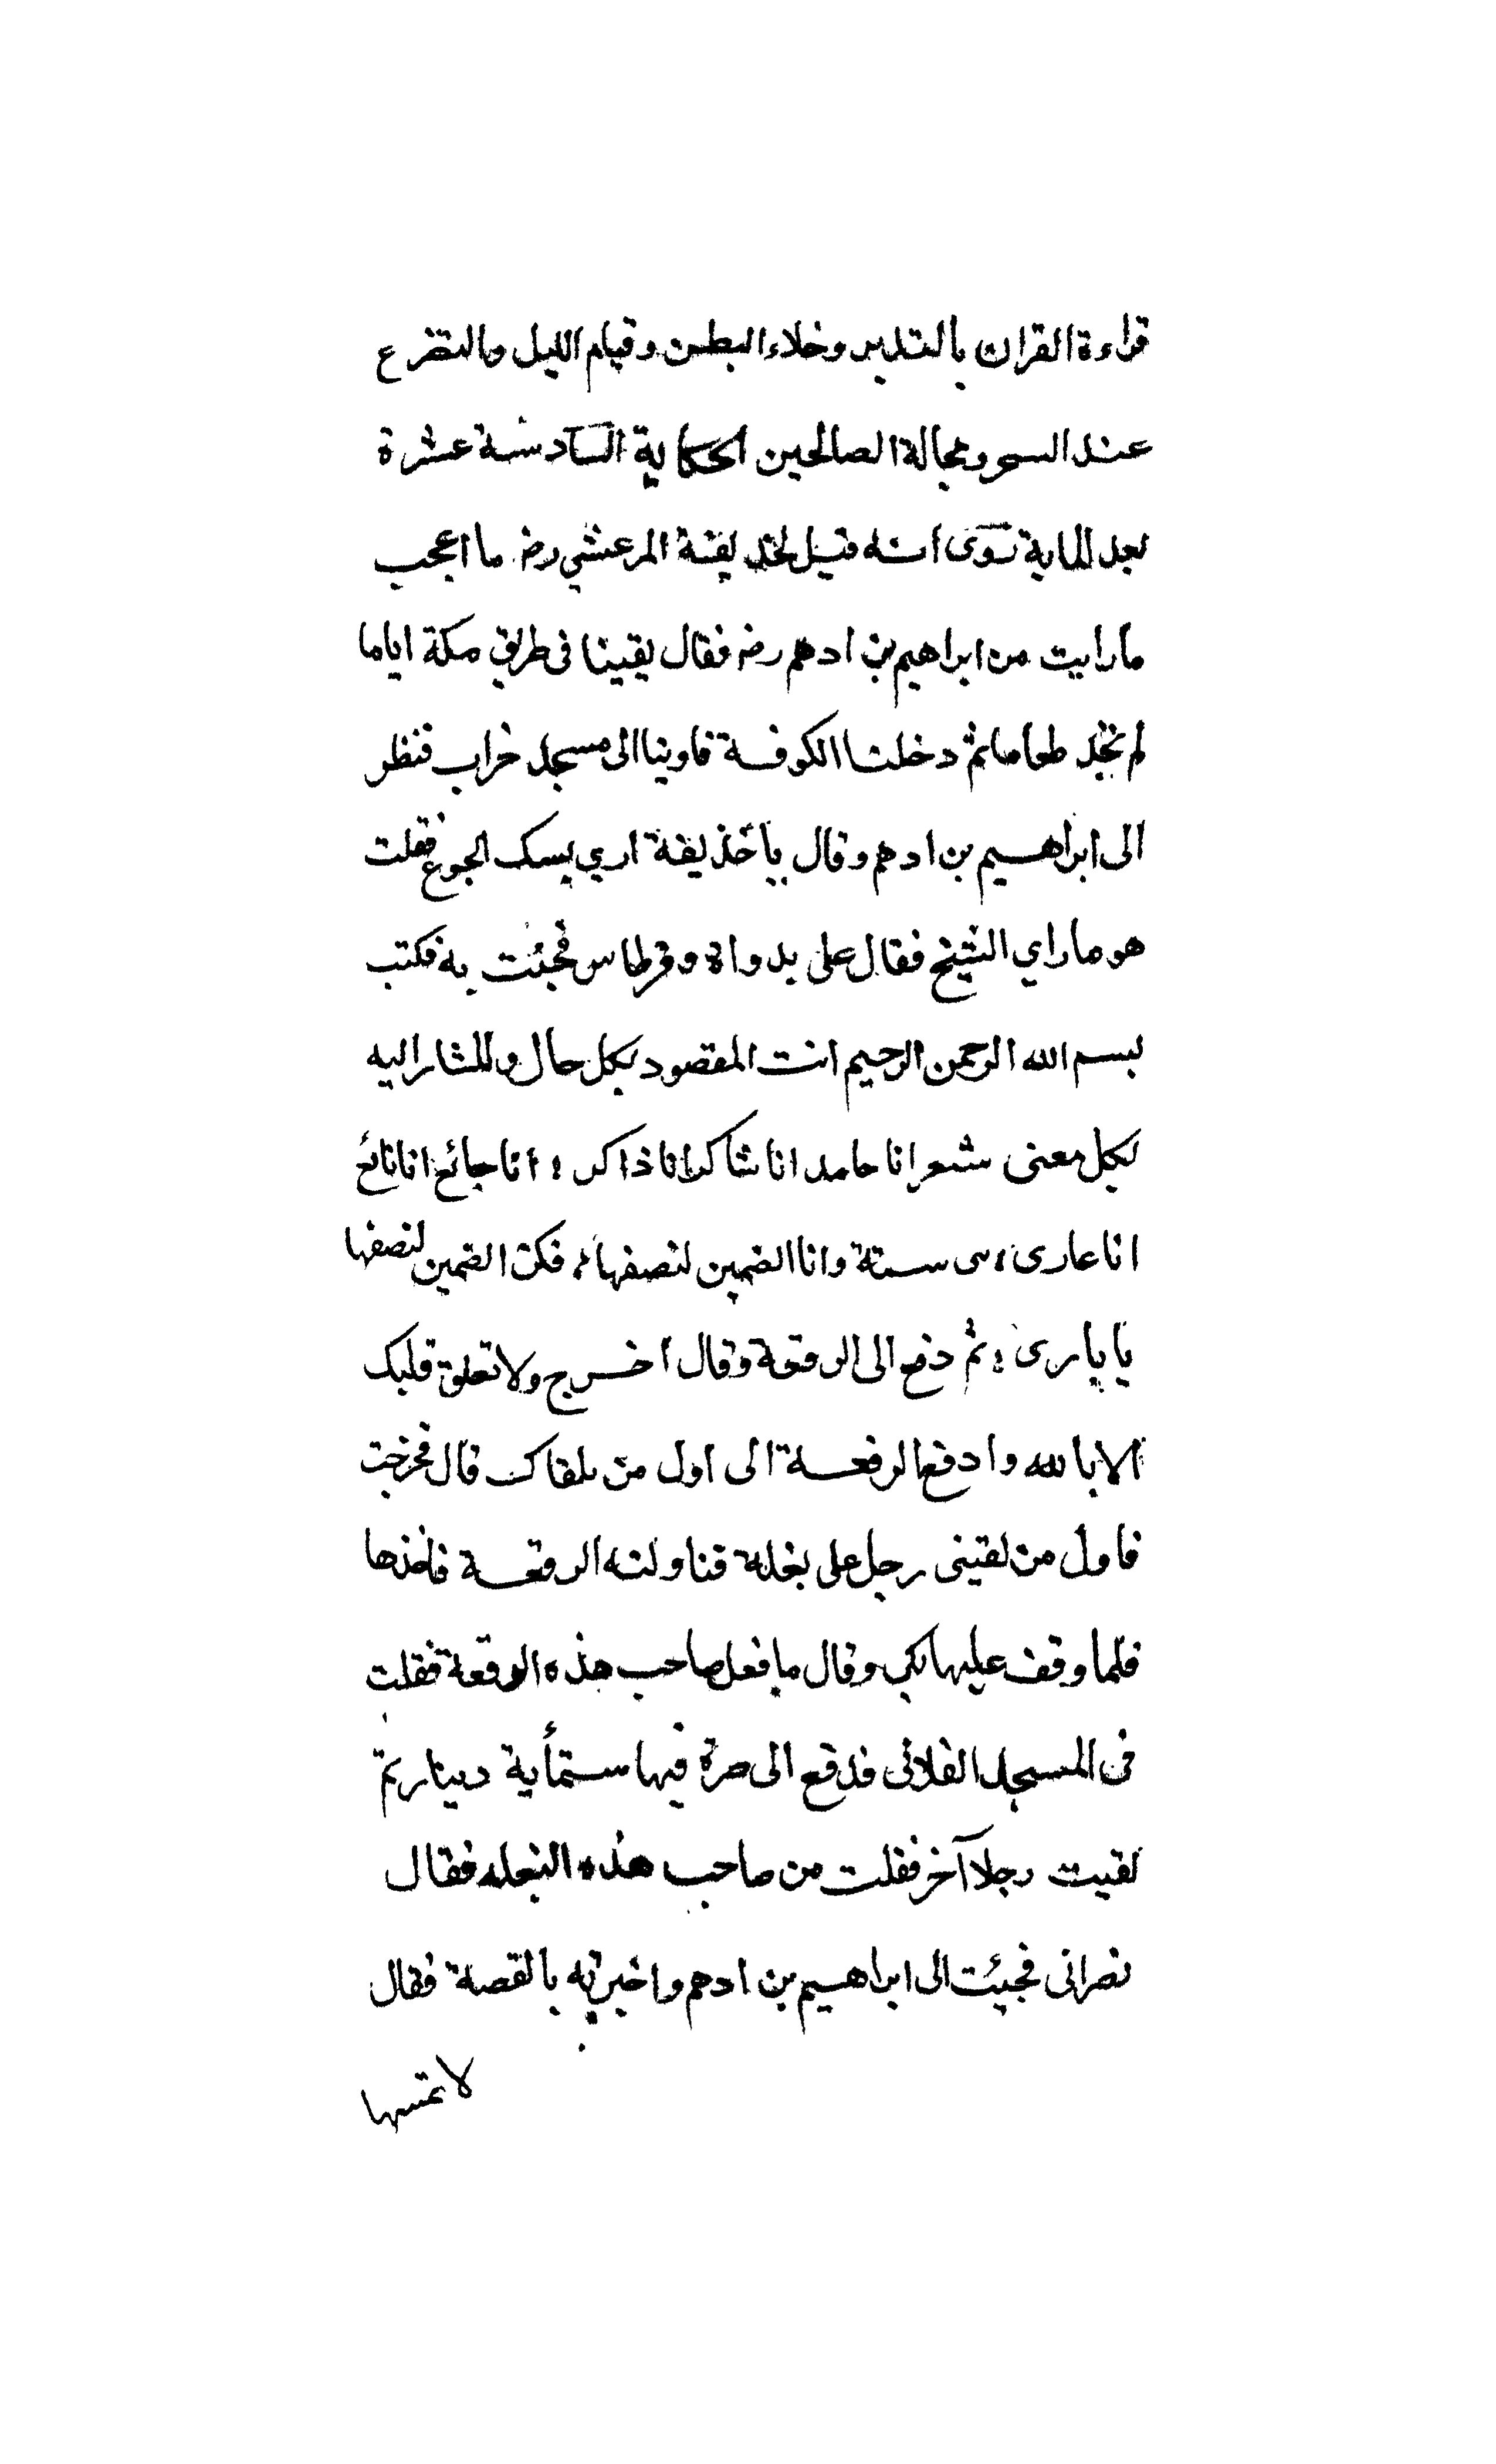 قراءة القران بالتدبر وخلاء البطن وقيام الليل والتضرع
عند السحر ومجالة الصالحين الحكاية السادسة عشرة
بعد الماية روى انه قيل لحذيفة المرعشي رضـ ما اعجب
ما رايت من ابراهيم بن ادهم رضـ فقال بقينا فى طريق مكة اياما
لم نجد طعاما ثم دخلنا الكوفة فاوينا الى مسجد خراب فنظر
الى ابراهيم بن ادهم وقال يا حذيفة اري بك الجوع فقلت
هو ما راي الشيخ فقال على بدواة وقرطاس فجئت به فكتب
بسم الله الرحمن الرحيم انت المقصود بكل حال والمشار اليه
بكل معنى شعر انا حامد انا شاكر انا ذاكر ؛ انا جائع انا نائع
انا عارى ، هى ستة وانا الضمين لنصفها ، فكن الضمين لنصفها
يا بارى ؛ ثم دفع الى الرقعة وقال اخرج ولا تعلق قلبك
الا بالله وادفع الرقعة الى اول من يلقاك قال فخرجت
فاول من لقينى رجل على بغلة فناولته الرقعة فاخذها
فلما وقف عليها بكى وقال ما فعل صاحب هذه الرقعة فقلت
فى المسجد الفلانى فدفع الى صرة فيها ستمأية دينار ثم
لقيت رجلا آخر فقلت من صاحب هذه البغله فقال
نصرانى فجيئت الى ابراهيم بن ادهم واخبرته بالقصة فقال
لا تمسها